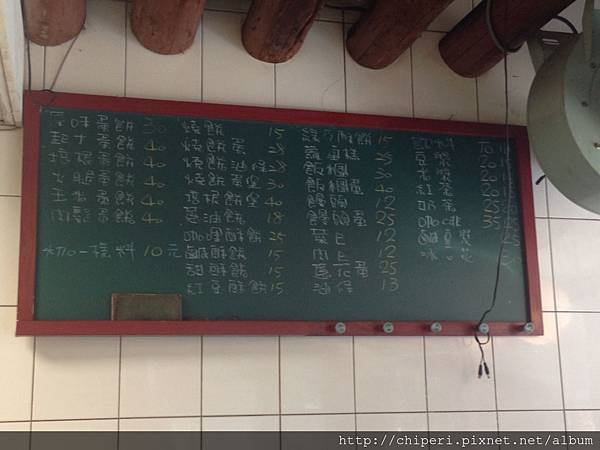 原味蛋餅 30
起士蛋餅 40
培根蛋餅 40
火腿蛋餅 40
玉米蛋餅 40
肉鬆蛋餅 40
加一樣料 10元
燒餅 15
燒餅蛋 28
燒餅油條 28
燒餅蛋堡 30
培根餅堡 40
蔥油餅 18
咖哩酥餅 25
鹹酥餅 15
甜酥餅 15
紅豆酥餅 15
綠豆酥餅 15
蘿蔔糕 25
飯糰 30
飯糰蛋 40
饅頭 12
饅頭蛋 25
菜包 12
肉包 12
蔥花蛋 25
油條 13
飲料
豆漿 20
米漿 20
紅茶 20
奶茶 25
咖啡 35
鹹豆漿
http://chiperi.pixnet.net/album